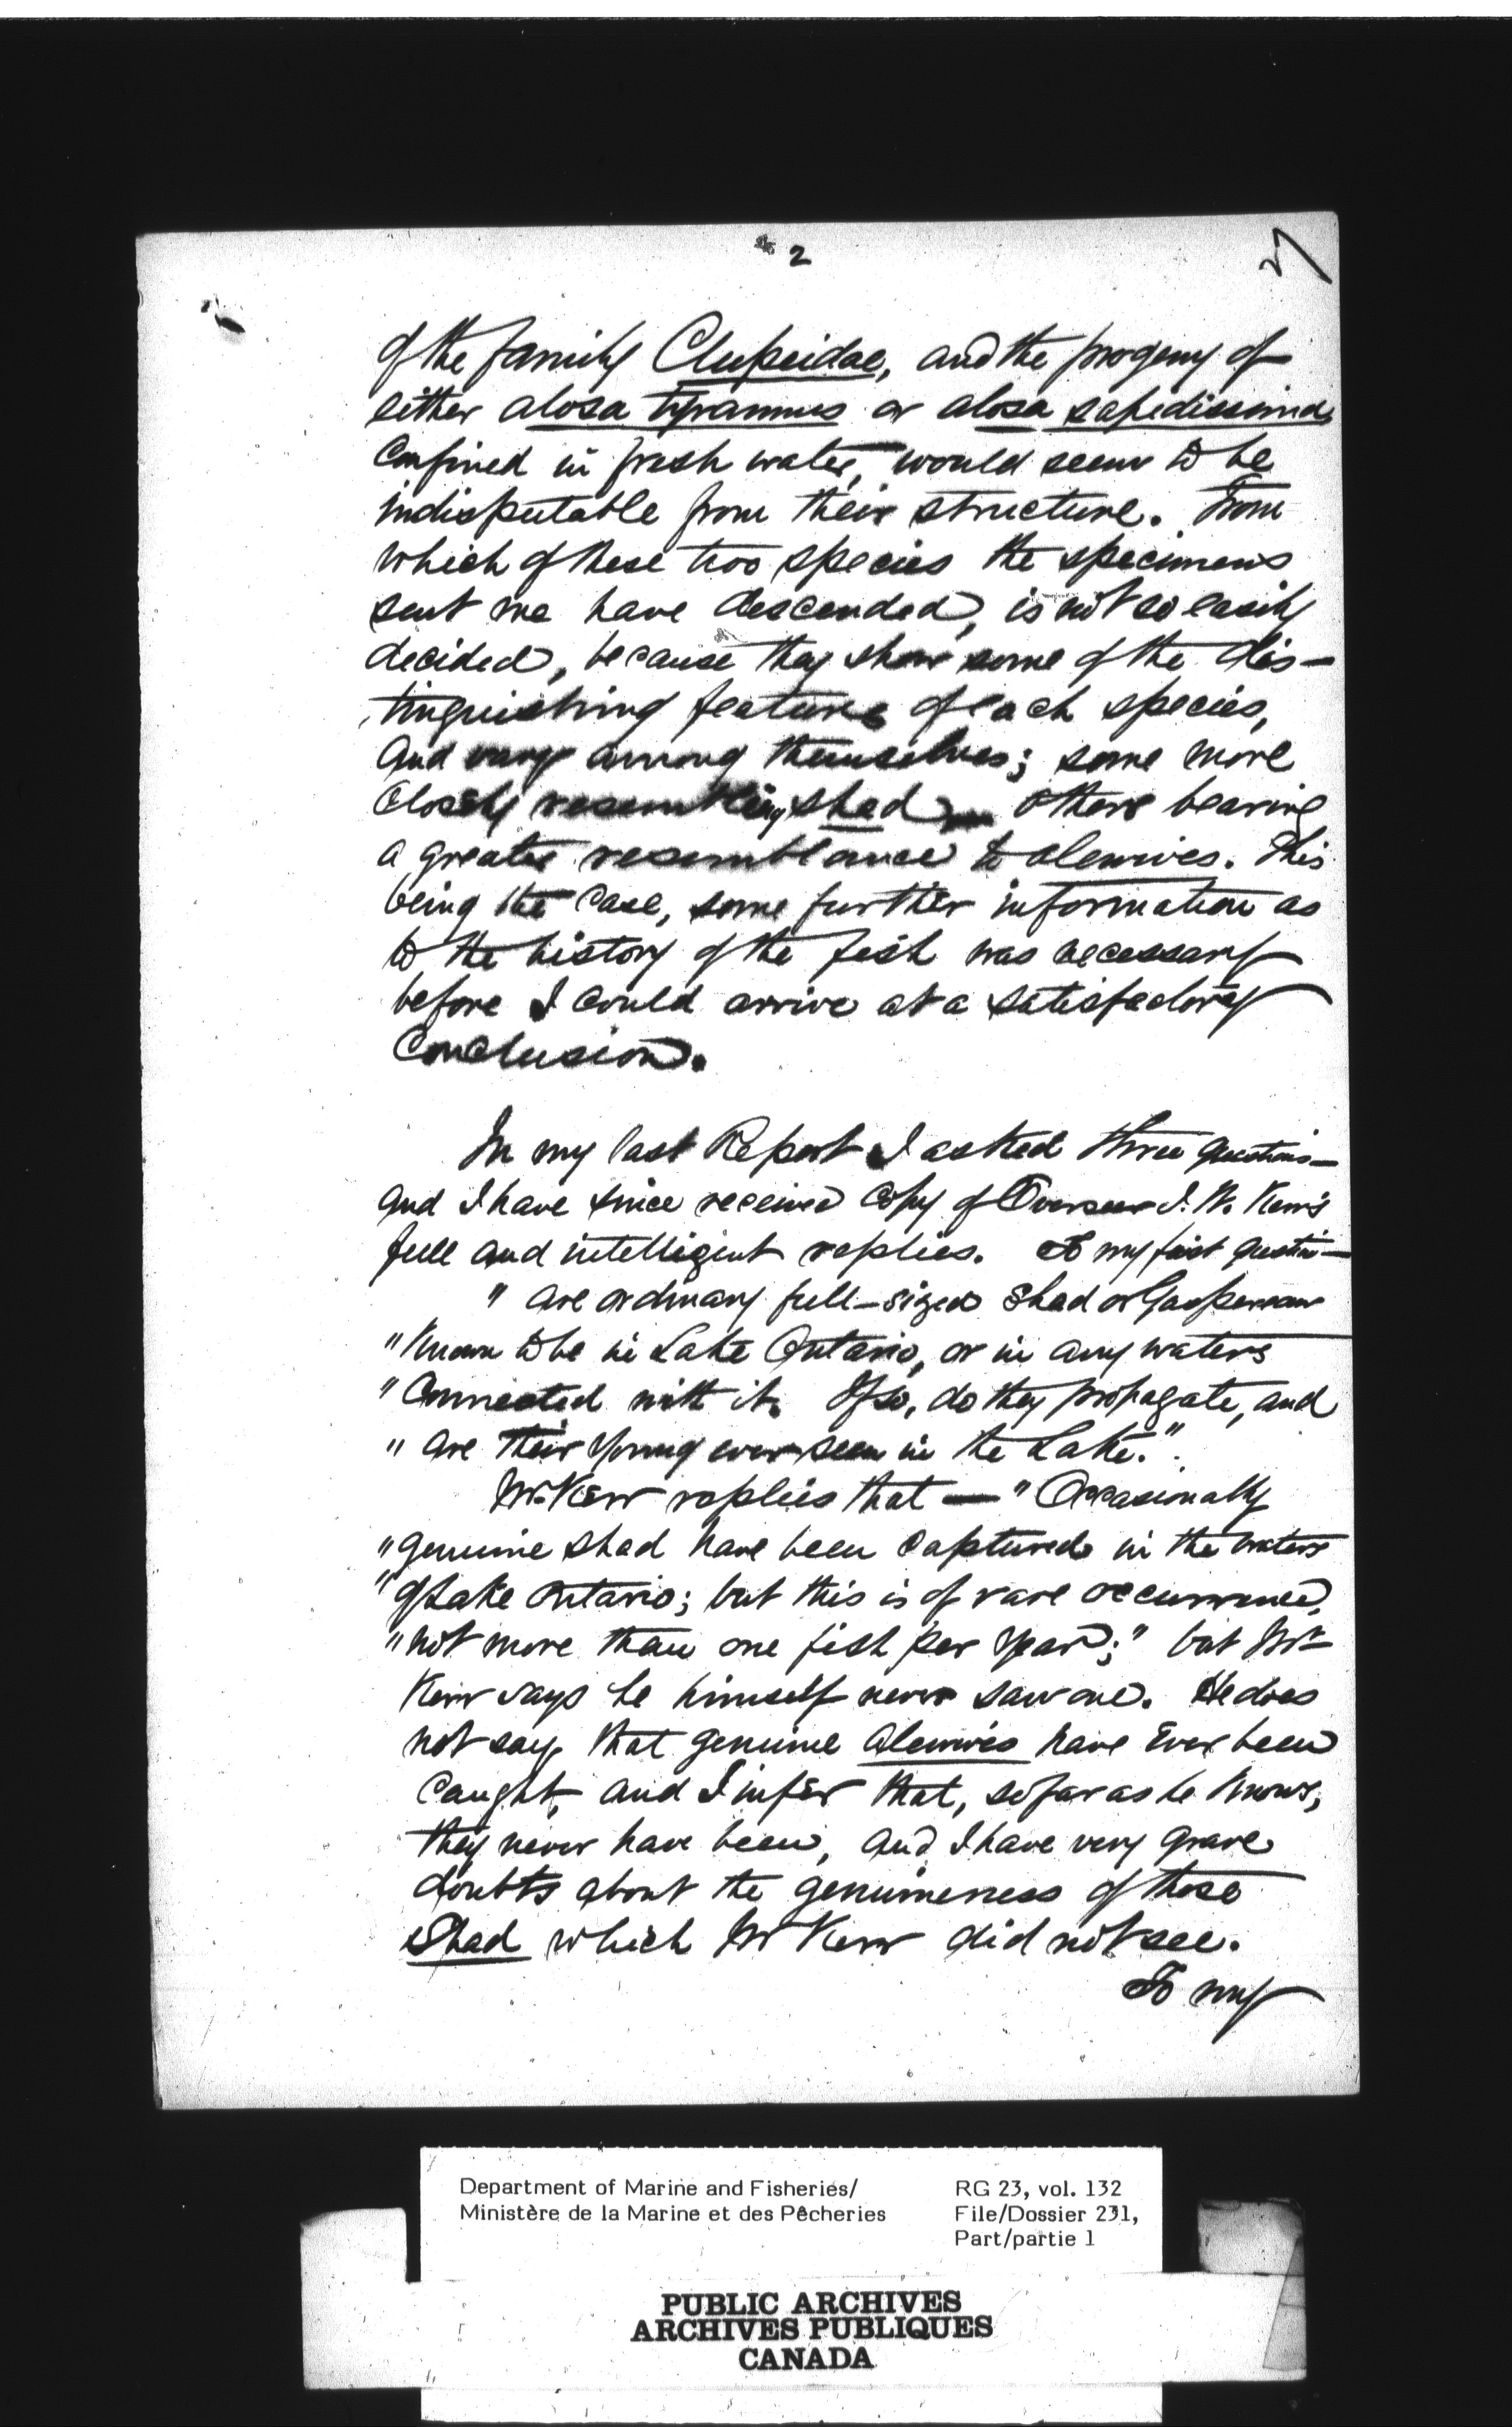 2
27
of the family Clupeidae, and the progeny of
either alosa tyrannus or alosa sapidissima
Confined in fresh water, would seem to be
indisputable from their structure. From
which of these two species the specimens
sent me have descended, is not so easily
decided, because they show some of the dis-
tinguishing features of each species,
and vary among themselves; some more
closely resembling shad, others bearing
a greater resemblance to alewives. This
being the case, some further information as
to the history of the fish was necessary
before I could arrive at a satisfactory
Conclusion.
In my last Report I asked three questions—
and I have since received Copy of Overseer J. W. Kerr's
full and intelligent replies. To my first question—
" are ordinary full-sized Shad or Gaspereau
" Known to be in Lake Ontario, or in any waters
" Connected with it. If so, do they propagate, and
" are their young ever seen in the Lake."
Mr. Kerr replies that — " Occasionally
" genuine shad have been captured in the waters
" of Lake Ontario; but this is of rare occurrence,
" not more than one fish per year;" but Mr
Kerr says he himself never saw one. He does
not say that genuine alewives have ever been
caught, and I infer that, so far as he knows,
they never have been, and I have very grave
doubts about the genuineness of those
Shad which Mr Kerr did not see.
To my
Department of Marine and Fisheries/
Ministère de la Marine et des Pêcheries
RG 23, vol. 132
File/Dossier 231,
Part/partie 1
PUBLIC ARCHIVES
ARCHIVES PUBLIQUES
CANADA